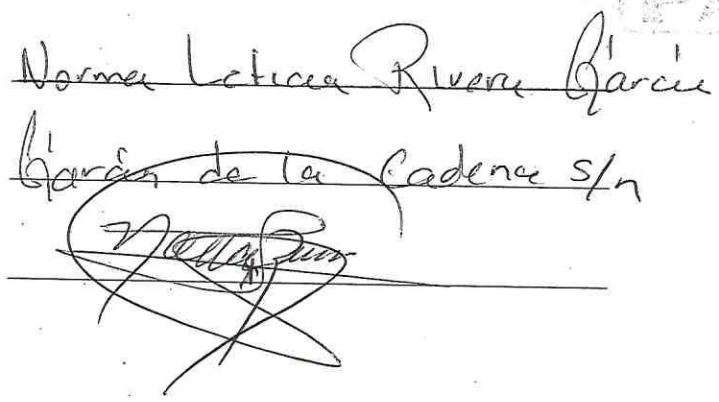 Norma Leticia Rivera García
García de la Cadena s/n